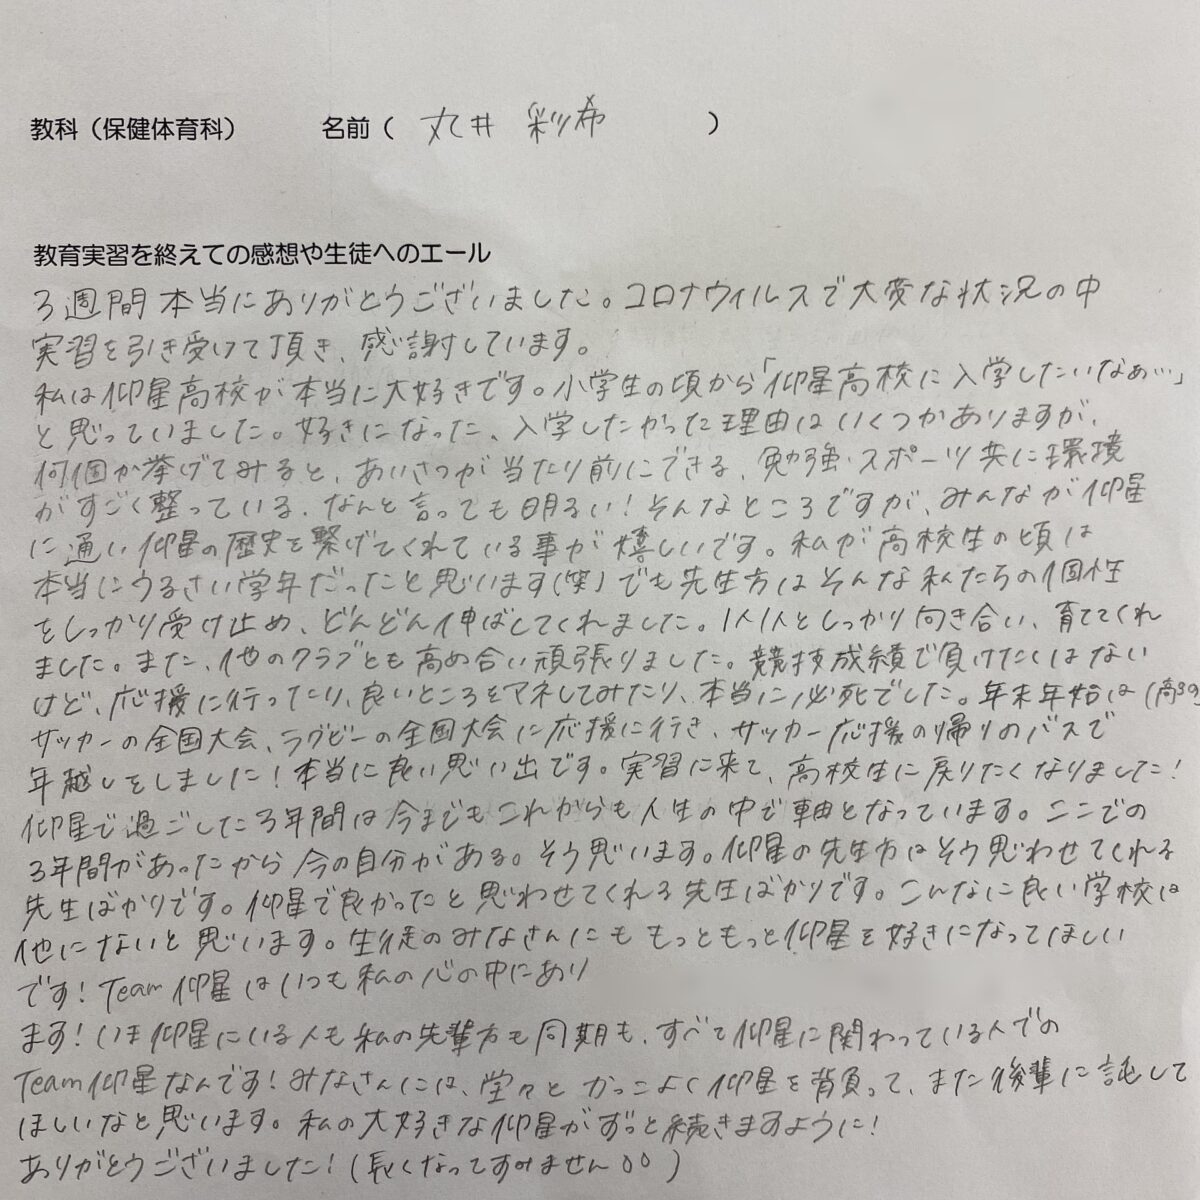 教科（保健体育科）　名前（ 丸井 彩希 ）
教育実習を終えての感想や生徒へのエール
3週間本当にありがとうございました。コロナウィルスで大変な状況の中
実習を引き受けて頂き、感謝しています。
私は仰星高校が本当に大好きです。小学生の頃から「仰星高校に入学したいなぁ…」
と思っていました。好きになった、入学したかった理由はいくつかありますが、
何個か挙げてみると、あいさつが当たり前にできる、勉強・スポーツ共に環境
がすごく整っている、なんと言っても明るい！そんなところですが、みんなが仰星
に通い仰星の歴史を繋げてくれている事が嬉しいです。私が高校生の頃は
本当にうるさい学年だったと思います(笑)でも先生方はそんな私たちの個性
をしっかり受け止め、どんどん伸ばしてくれました。1人1人としっかり向き合い、育ててくれ
ました。また、他のクラブとも高め合い頑張りました。競技成績で負けたくはない
けど、応援に行ったり、良いところをマネしてみたり、本当に必死でした。年末年始は(高3の)
サッカーの全国大会、ラグビーの全国大会に応援に行き、サッカー応援の帰りのバスで
年越しをしました！本当に良い思い出です。実習に来て、高校生に戻りたくなりました！
仰星で過ごした3年間は今までもこれからも人生の中で軸となっています。ここでの
3年間があったから今の自分がある。そう思います。仰星の先生方はそう思わせてくれる
先生ばかりです。仰星で良かったと思わせてくれる先生ばかりです。こんなに良い学校は
他にないと思います。生徒のみなさんにももっともっと仰星を好きになってほしい
です！Team仰星はいつも私の心の中にあり
ます！いま仰星にいる人も私の先輩方も同期も、すべて仰星に関わっている人での
Team仰星なんです！みなさんには、堂々とかっこよく仰星を背負って、また後輩に託して
ほしいなと思います。私の大好きな仰星がずっと続きますように！
ありがとうございました！(長くなってすみません。。)